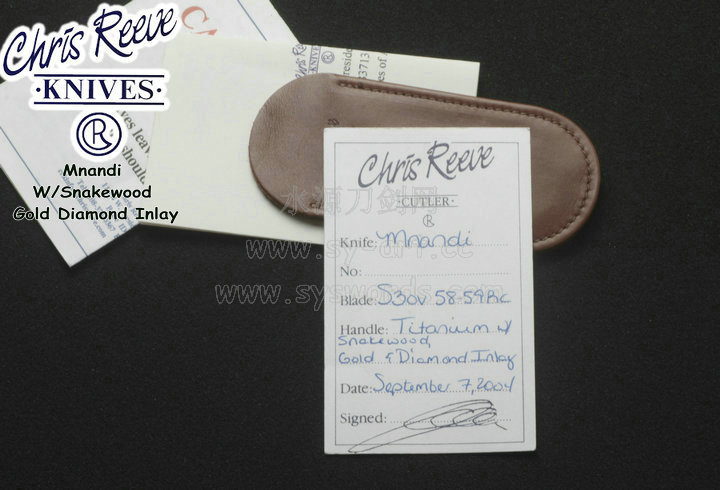 Chris Reeve
·KNIVES·
R
Mnandi
W/Snakewood
Gold Diamond Inlay
Chris Reeve
·KNIVES·
R
Chris Reeve
·CUTLER·
R
Knife: Mnandi
No:
Blade: S30V 58-59Rc
Handle: Titanium w/
Snakewood,
Gold & Diamond Inlay
Date: September 7, 2004
Signed:
水源刀剑网
www.sy-art.cc
www.syswords.com